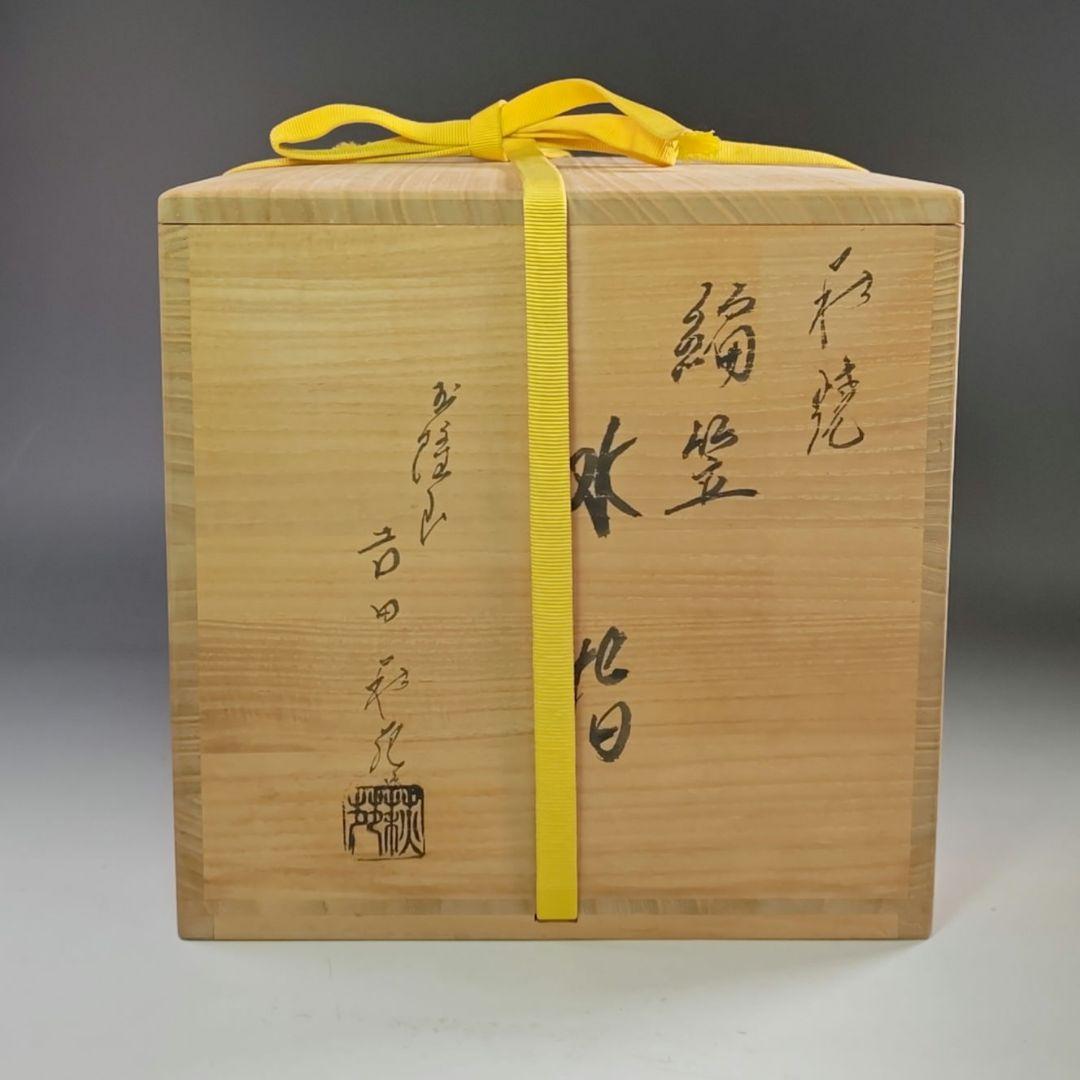 萩焼
編笠
水指
玉隆山
吉田萩苑
萩苑